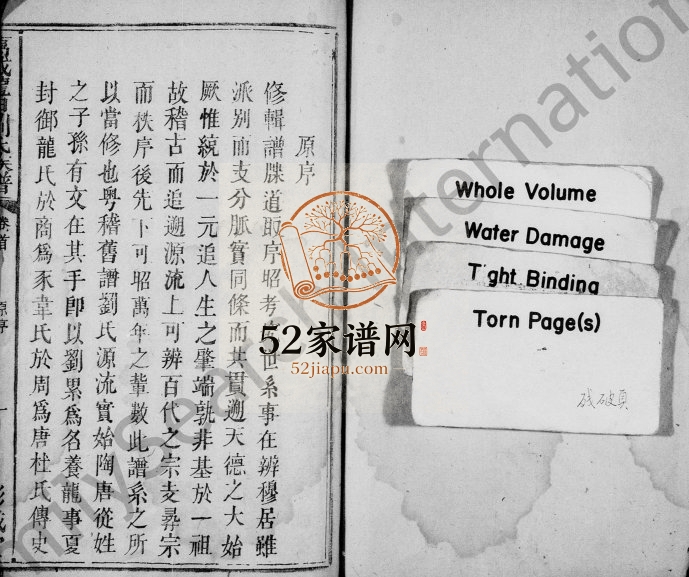 原序
修輯譜牒道取序昭考世系事在辨穆居雖
派別而支分脈實同條而共貫遡天德之大始
厥惟統於一元追人生之肇端孰非基於一祖
故稽古而追遡源流上可辨百代之宗支彛宗
而秩序後先下可昭萬年之輩數此譜系之所
以當修也粤稽舊譜劉氏源流實始陶唐從姓
之子孫有文在其手卽以劉累爲名養龍事夏
封御龍氏於商爲豕韋氏於周爲唐杜氏傳史
劉氏族譜
卷首
原序
一
Whole Volume
Water Damage
Tight Binding
Torn Page(s)
残破頁
52家谱网
52jiapu.com